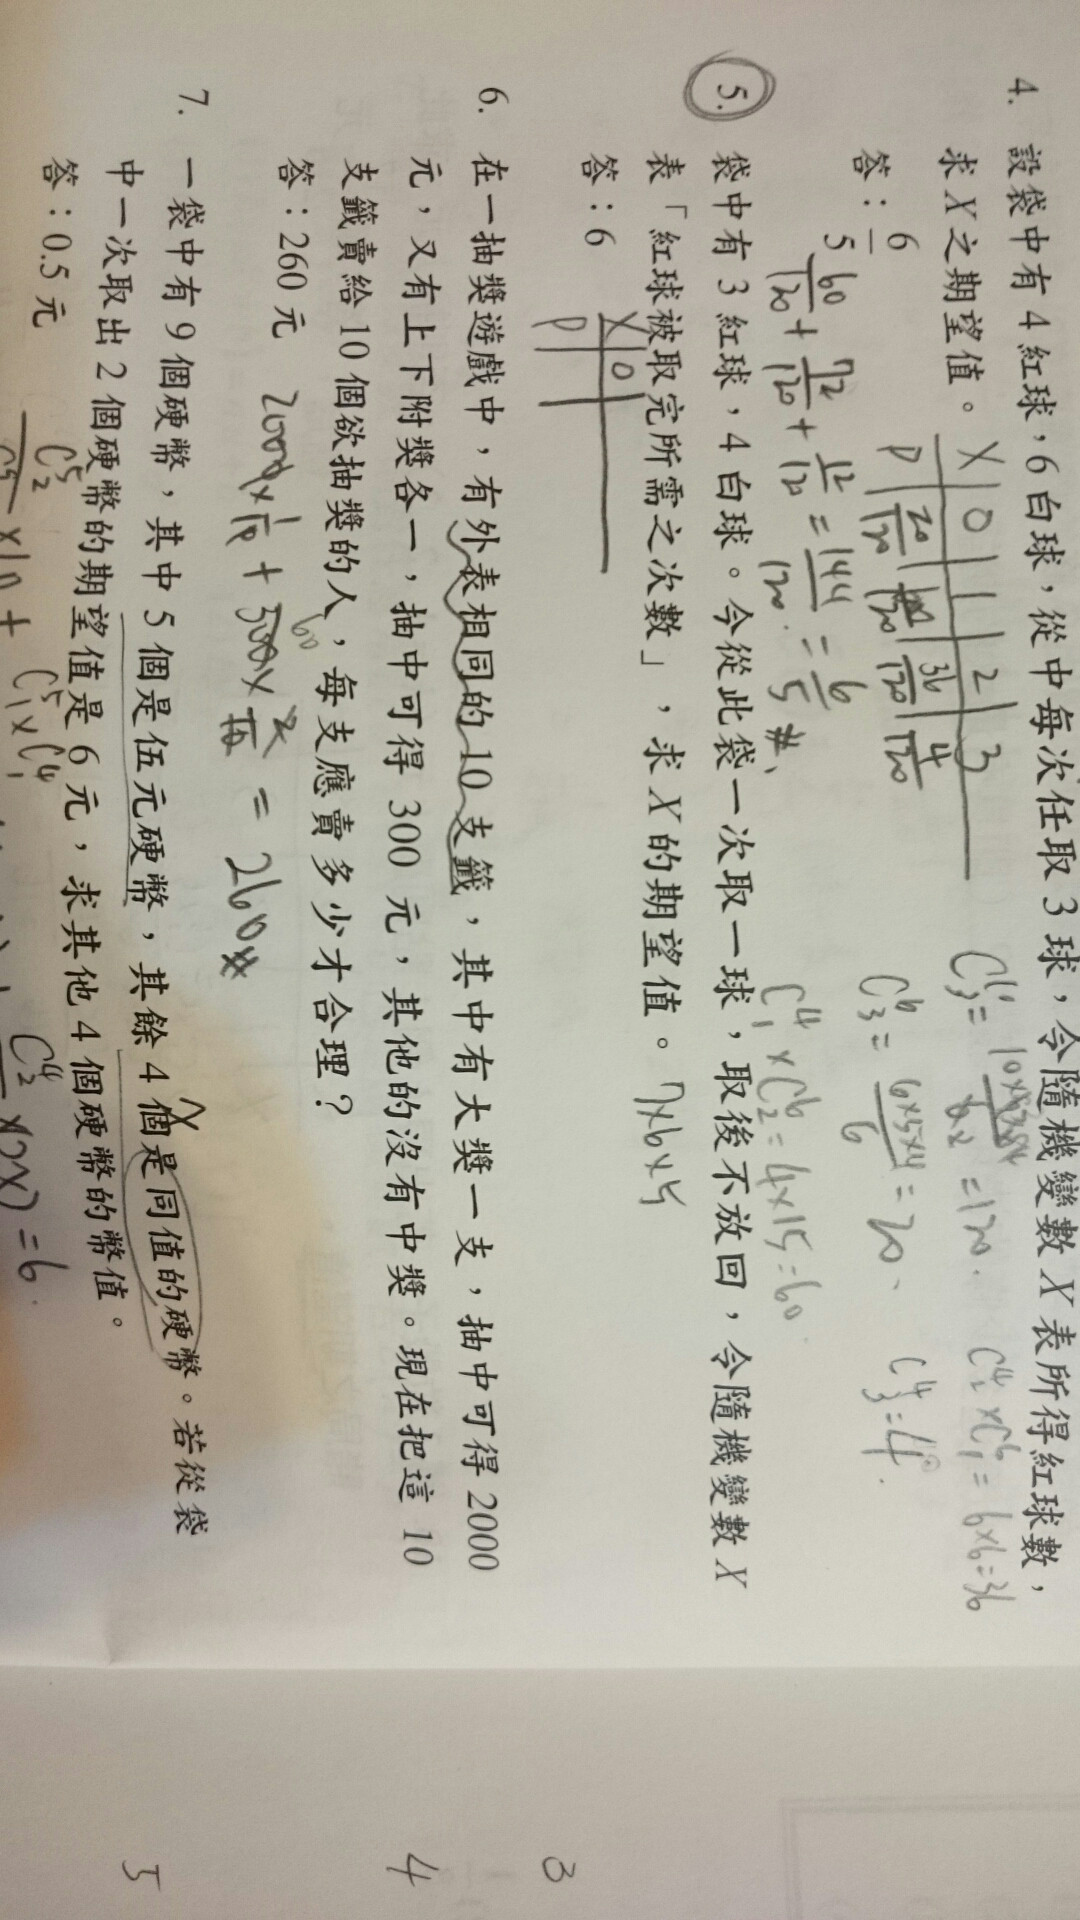 4. 設袋中有 4 紅球，6 白球，從中每次任取 3 球，令隨機變數 X 表所得紅球數，
求 X 之期望值。
X 0 1 2 3
P 20/120 36/120 4/120
C^6_3 = 6×5×4/6 = 20、
C^4_2×C^6_1 = 6×6=36
C^4_3=4
答：6/5
60/120 + 72/120 + 12/120 = 144/120 = 6/5 #
C^4_1×C^6_2=4×15=60
5. 袋中有 3 紅球，4 白球。今從此袋一次取一球，取後不放回，令隨機變數 X
表「紅球被取完所需之次數」，求 X 的期望值。 7×6×5
答：6
X 0
P
6. 在一抽獎遊戲中，有外表相同的 10 支籤，其中有大獎一支，抽中可得 2000
元，又有上下附獎各一，抽中可得 300 元，其他的沒有中獎。現在把這 10
支籤賣給 10 個欲抽獎的人，每支應賣多少才合理？
答：260 元
2000×1/10 + 300×2/10 = 260
60
7. 一袋中有 9 個硬幣，其中 5 個是伍元硬幣，其餘 4 個是同值的硬幣。若從袋
中一次取出 2 個硬幣的期望值是 6 元，求其他 4 個硬幣的幣值。
答：0.5 元
C^5_2
×10 +
C^5_1×C^4_1
C^4_2
×(2X)=6
3
4
5